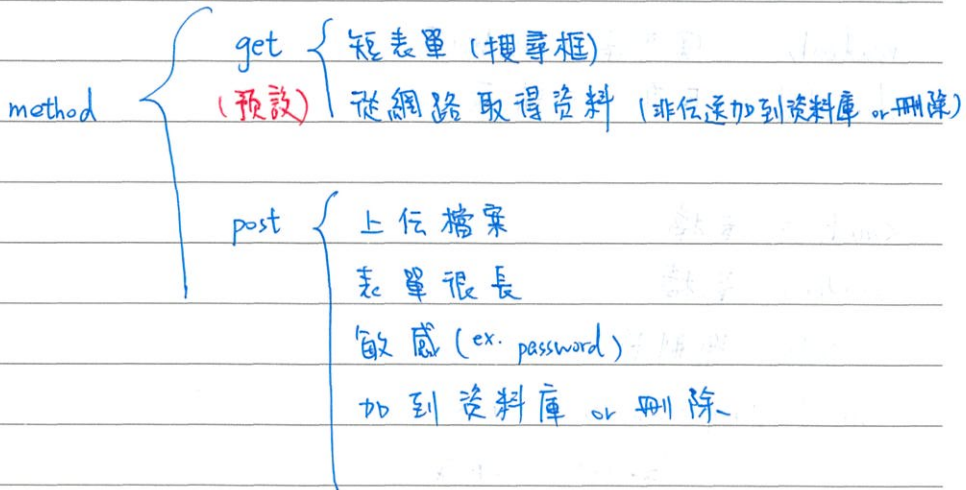 method
get
(預設)
短表單 (搜尋框)
從網路取得資料 (非伝送加到资料庫 or 刪除)
post
上伝檔案
表單很長
敏感 (ex. password)
加到資料庫 or 刪除